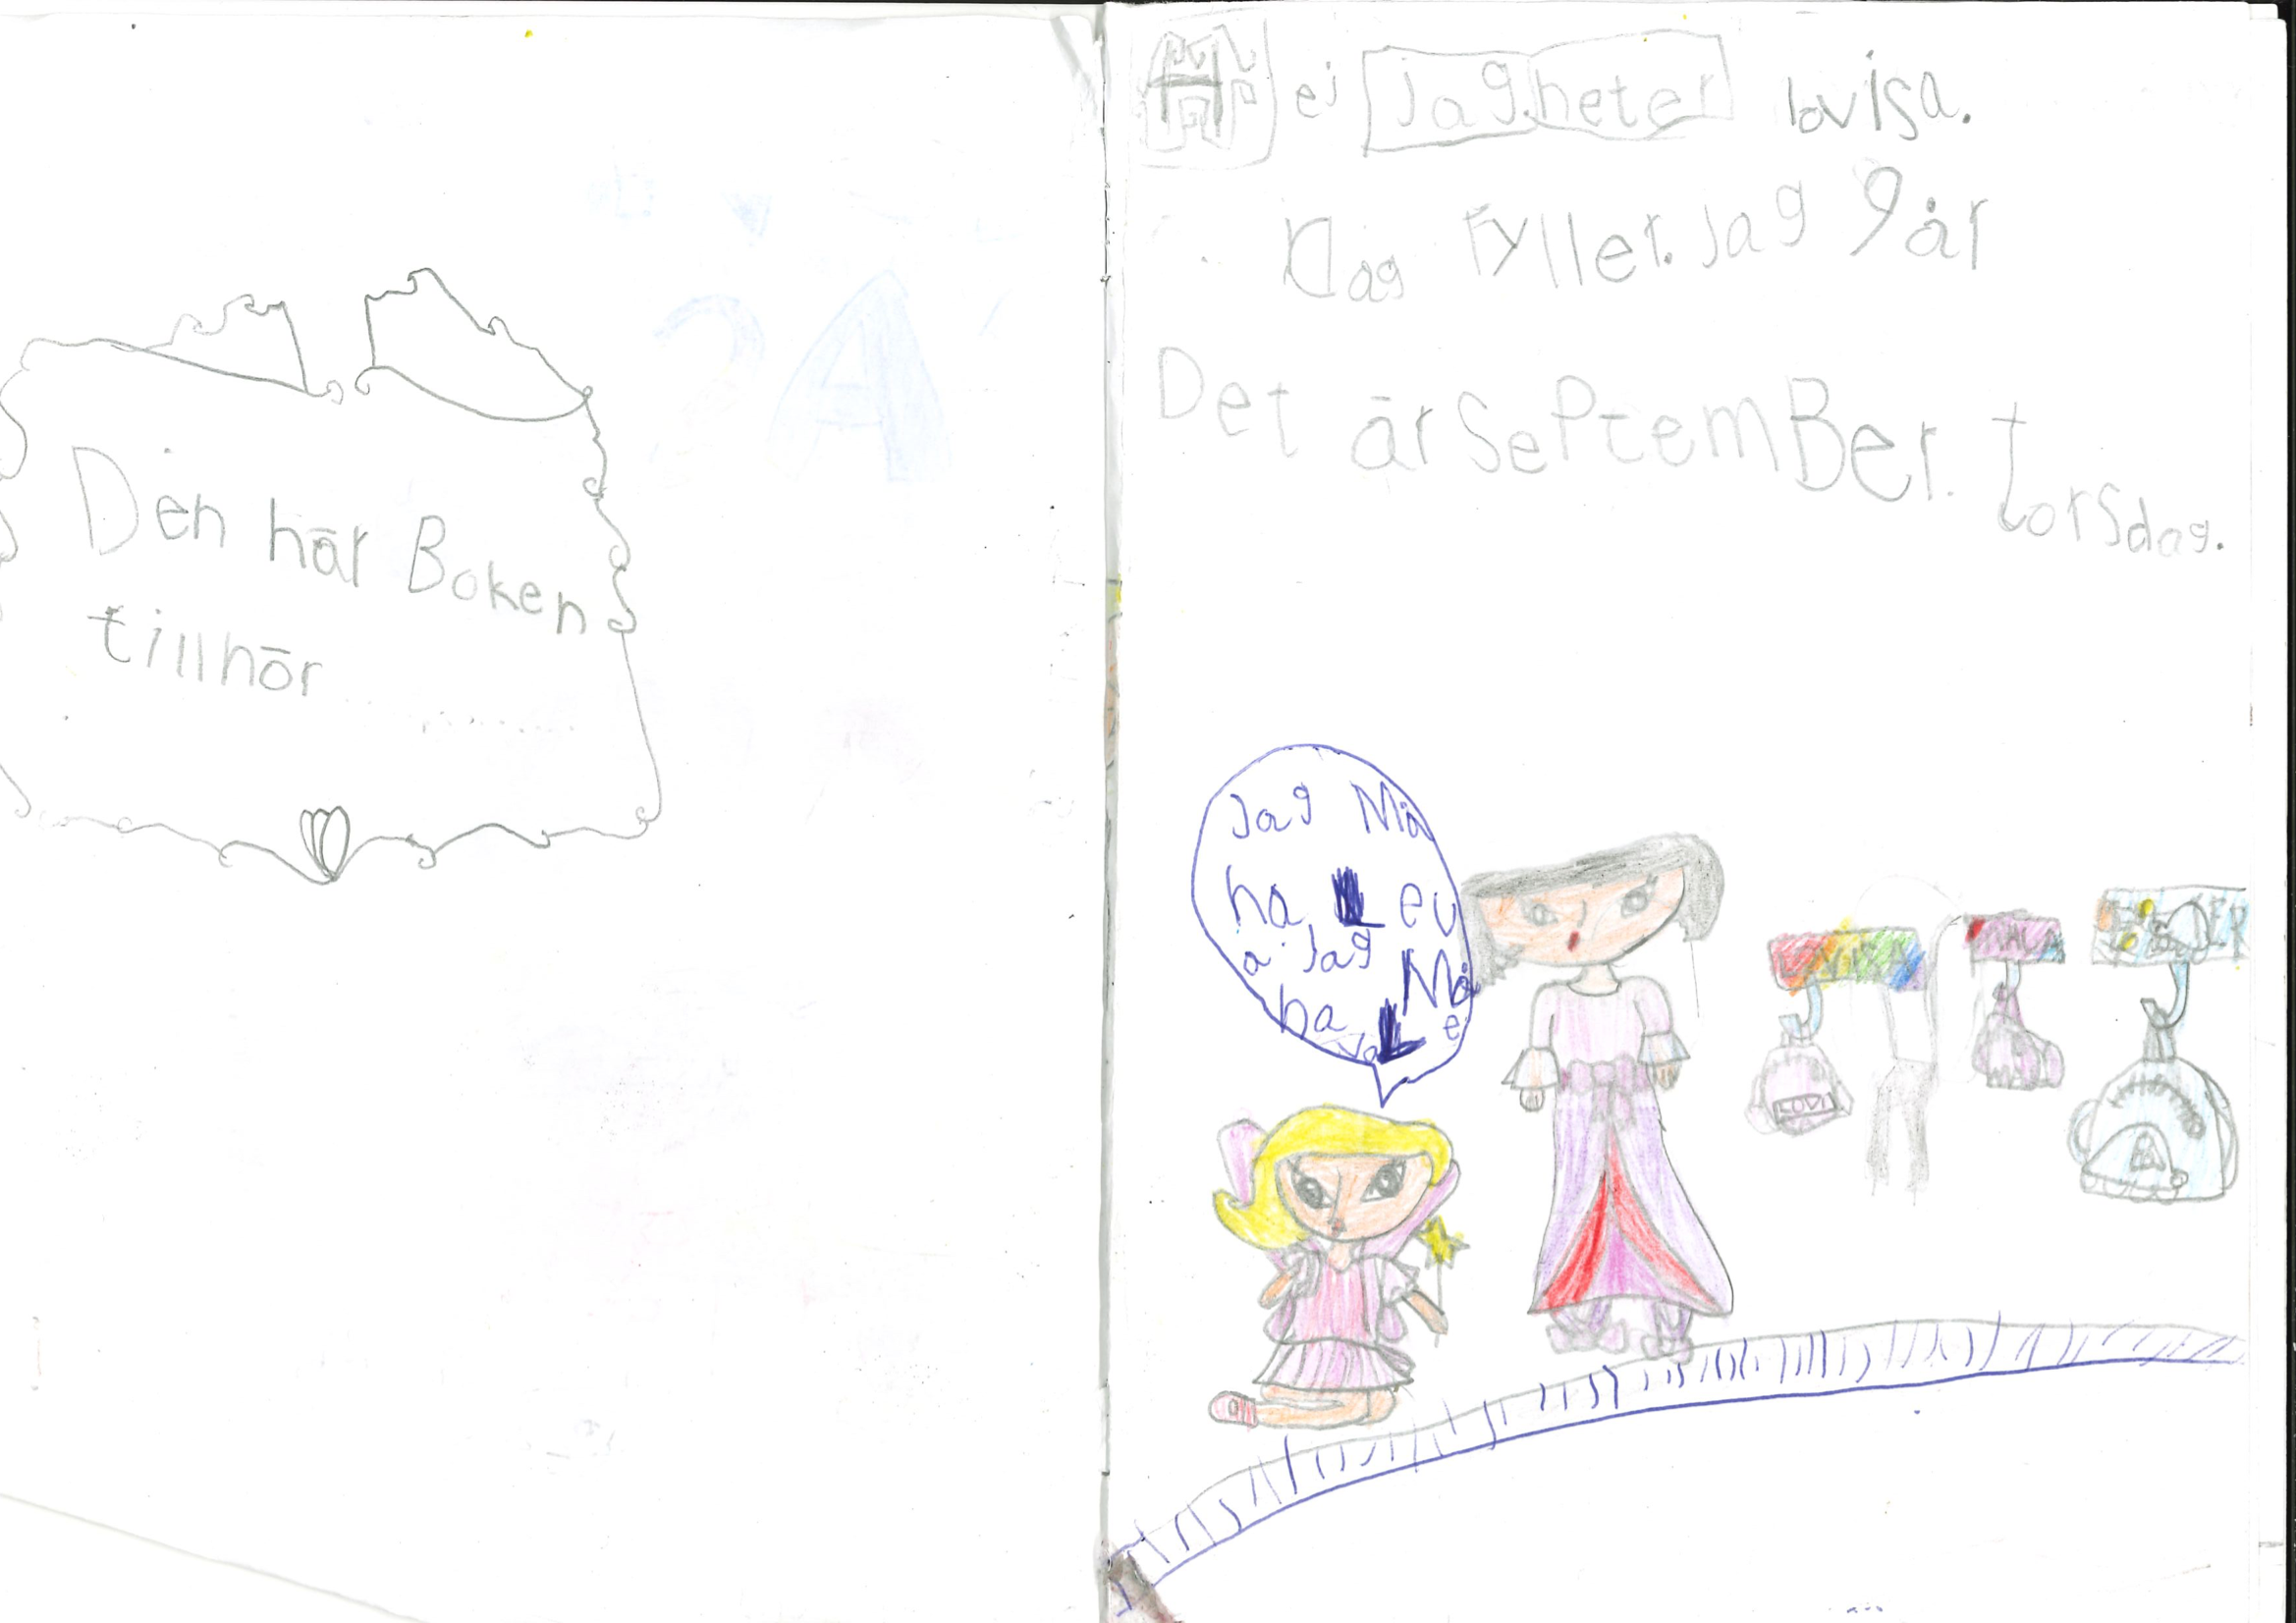 Den här Boken
tillhör
Hej jag heter lovisa.
Idag fyller jag 9 år
Det är SePtemBer. torsdag.
Jag Må
ha Lev
a Jag Må
ha L e
va
LOVI